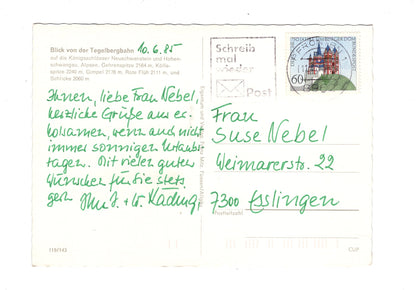 Blick von der Tegelbergbahn 10.6.85
auf die Königsschlösser Neuschwanstein und Hohen-
schwangau, Alpsee, Gehrenspitze 2164 m, Köllе-
spitze 2240 m, Gimpel 2176 m, Rote Flüh 2111 m, und
Schlicke 2060 m
Ihnen, liebe Frau Nebel,
herzliche Grüße aus er-
holsamen, wenn auch nicht
immer sonnigen Urlaubs-
tagen. Mit vielen guten
Wünschen für Sie stets
Schreib
mal
wieder
Post
60
Frau
Suse Nebel
Weimarerstr. 22
7300 Esslingen
Postleitzahl
110/143